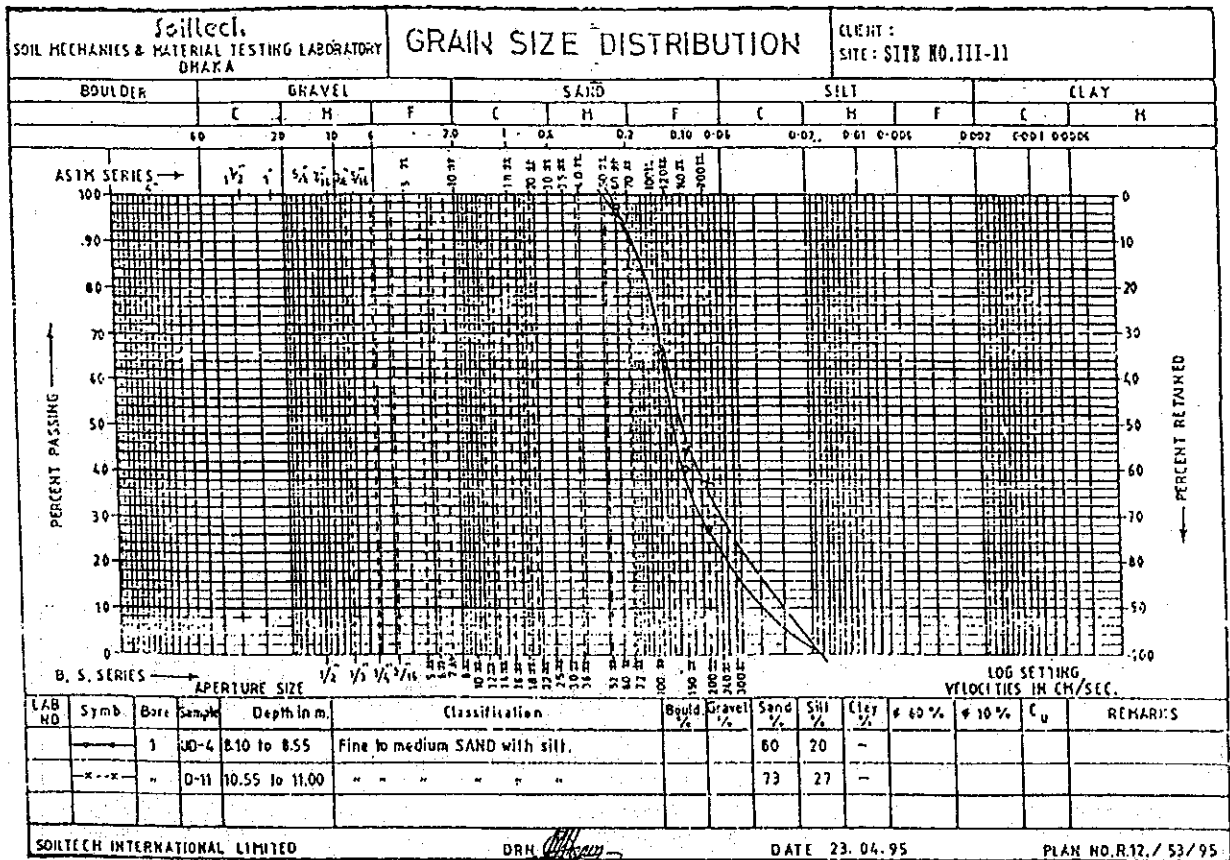 Soiltech
SOIL MECHANICS & MATERIAL TESTING LABORATORY
DHAKA
GRAIN SIZE DISTRIBUTION
CLIENT :
SITE : SITE NO.III-11
BOULDER GRAVEL SAND SILT CLAY
C M F C M F C M F C M
60 20 10 6 2.0 1 0.2 0.10 0.06 0.02 0.01 0.006 0.002 0.001 0.0006
ASTM SERIES
100 90 80 70 60 50 40 30 20 10 0
PERCENT PASSING
0 10 20 30 40 50 60 70 80 90 100
PERCENT RETAINED
B. S. SERIES
APERTURE SIZE
LOG SETTING
VELOCITIES IN CM/SEC.
LAB NO Symb. Bore Sample Depth in m. Classification Bould. % Gravel % Sand % Silt % Clay % ϕ 60 % ϕ 10 % Cu REMARKS
1 UD-4 8.10 to 8.55 Fine to medium SAND with silt. 80 20 -
" D-11 10.55 to 11.00 " " " " " " 73 27 -
SOILTECH INTERNATIONAL LIMITED
DRN
DATE 23.04.95
PLAN NO.R.12./ 53/95